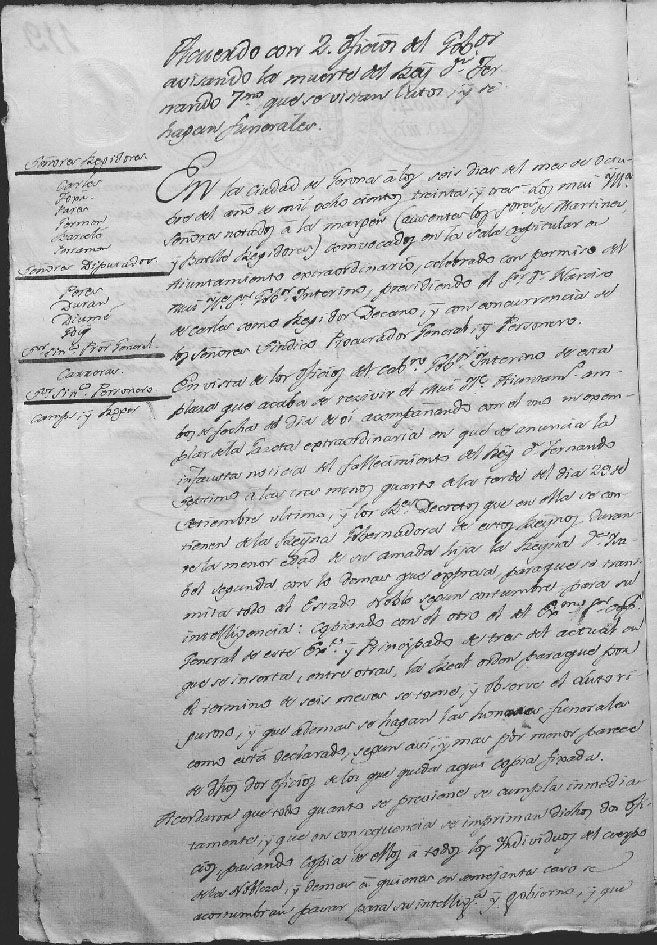 Acuerdo con 2. oficios del Gob.or
avisando la muerte del Rey Dn. Fer-
nando 7mo que se vistan lutos, y se
hagan funerales.
Señores Regidores.
Carles
Pares
Ferrer
Barceló
Señores Diputados
Peres
Duran
Diumé
Puig
Sor. Sinco. Pror. General.
Carreras.
Sor. Sinco. Personero
Camps, y Roger
En la ciudad de Gerona a los seis dias del mes de Octu-
bre del año de mil ocho cientos treinta, y tres: Los mui Ill.s
Señores notados a la margen (ausentes los Sores. de Martinez,
y Barlle Regidores) convocados en la Sala capitular en
Aiuntamiento extraordinario, celebrado con permiso del
mui Ille. Sor. Gobor. Interino, presidiendo el Sr. Dn. Narciso
de Carles como Regidor Decano, y con concurrencia de
los señores Sindico Procurador General, y Personero.
En vista de los oficios del Cabro. Gobr. Interino de esta
plaza que acaba de recivir el mui Ille. Aiuntamto. am-
bos de fecha del dia de oi acompañando con el uno un exem-
plar de la Gazeta extraordinaria en que se anuncia la
infausta noticia del fallecimiento del Rey Dn. Fernando
Septimo a las tres menos quarto de la tarde del dia 29 de
Setiembre ultimo, y los Rs. Decretos que en ella se con-
tienen de la Reyna Gobernadora de estos Reynos duran-
te la menor edad de su amada hija la Reyna Da. Isa-
bel segunda con lo demas que expresa, paraque se trans-
mita todo al Estado Noble segun costumbre para su
intelligencia: Copiando con el otro el del Exmo. Sor. Capn.
General de este Exto. y Principado de tres del actual en
que se inserta, entre otras, la Real orden paraque por
el termino de seis meses se tome, y observe el luto ri
guroso, y que ademas se hagan las honrras funerales
como está declarado, segun asi, y mas por menor parece
de dhos dos oficios de los que queda aqui copia fixada.
Acordaron que todo quanto se previene se cumpla inmedia
tamente, y que en consequencia se impriman dichos dos ofi-
cios, pasando copia de ellos a todos los Individuos del cuerpo
de la Nobleza, y demas á quienes en semejante caso se
acostumbran pasar para su intelliga. y gobierno, y que